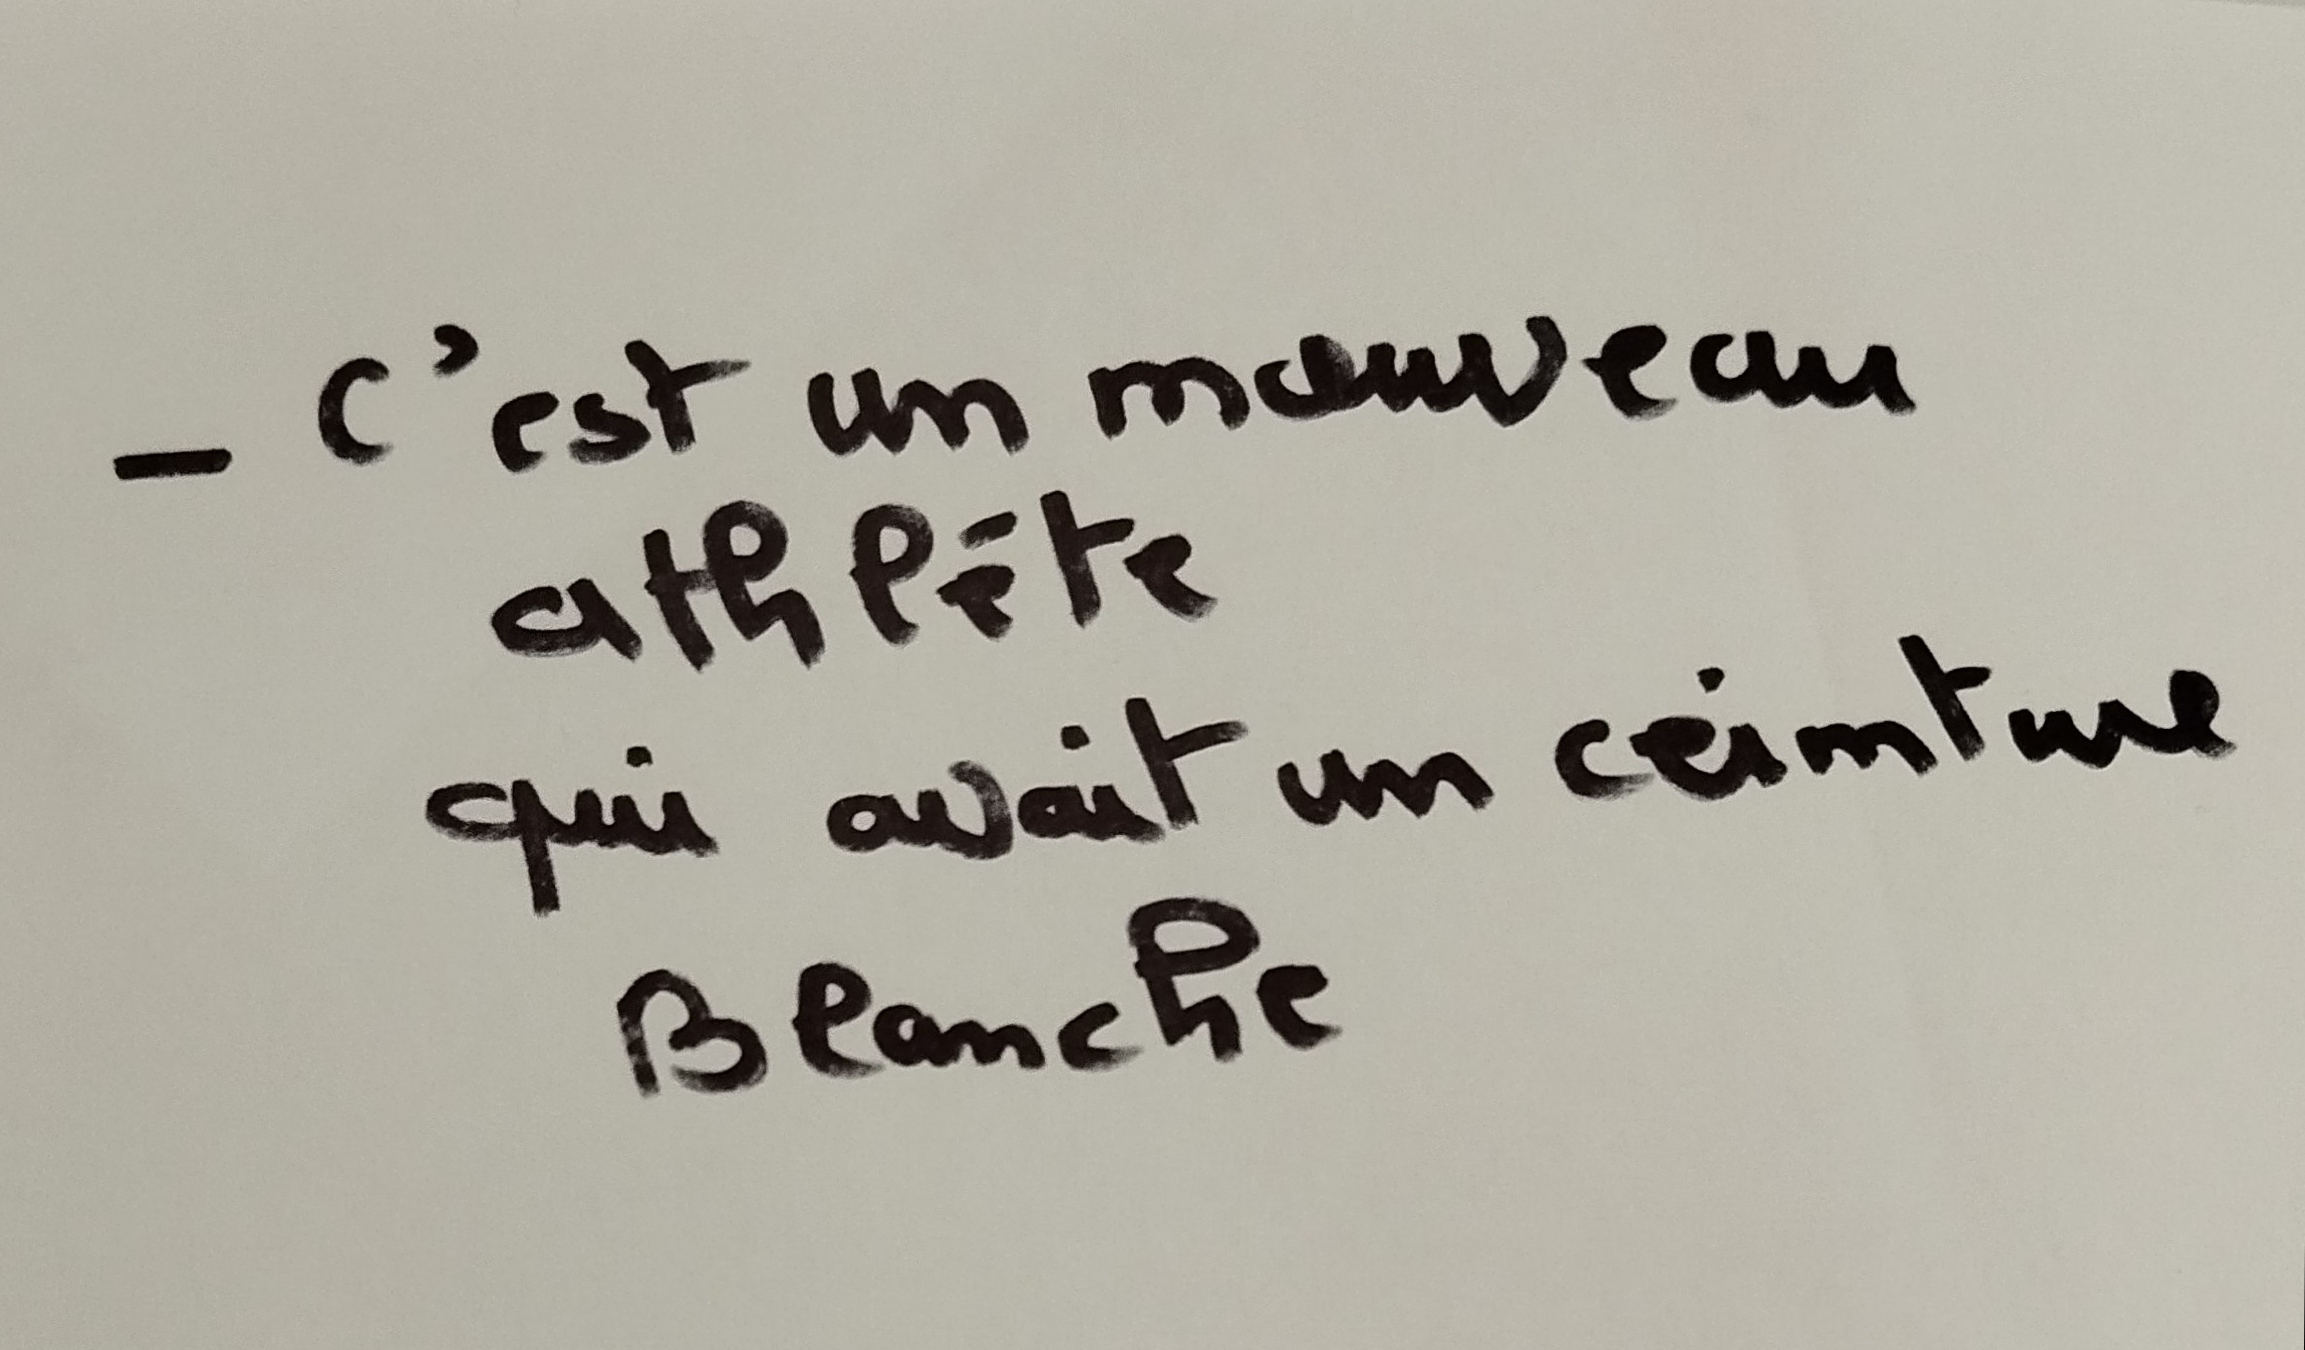 - C'est un nouveau
athléte
qui avait un ceinture
Blanche